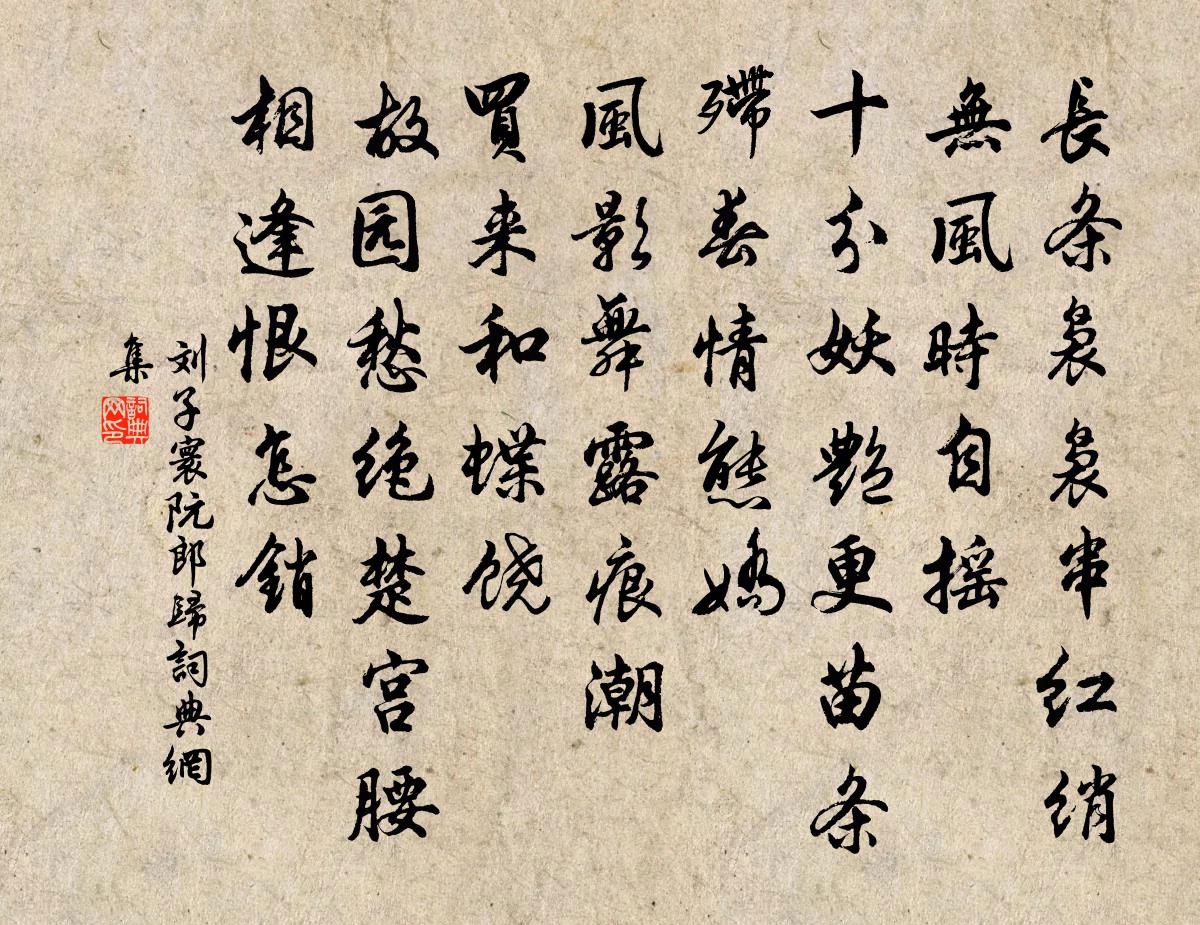 長条袅袅串红绡
無風時自摇
十分妖艷更苗条
殢春情態嬌
風影舞露痕潮
買来和蝶饶
故园愁绝楚宫腰
相逢恨怎銷
刘子寰阮郎歸詞典網
集
詞典网印